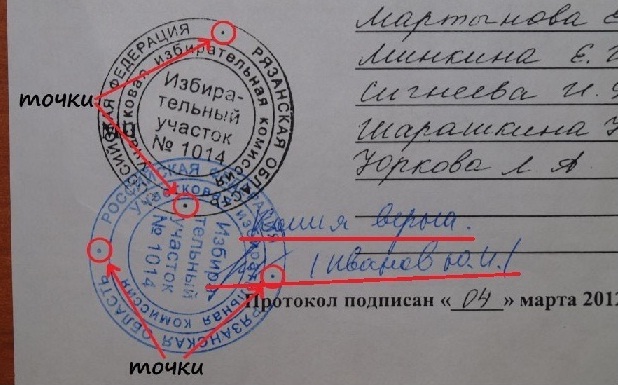 Мартынова Е
Минкина Е. Г
Сигнеева И.
Шарашкина Н
Юркова Л А
РОССИЙСКАЯ ФЕДЕРАЦИЯ РЯЗАНСКАЯ ОБЛАСТЬ
Участковая избирательная комиссия
Избира-
тельный
участок
№ 1014
точки
РОССИЙСКАЯ ФЕДЕРАЦИЯ РЯЗАНСКАЯ ОБЛАСТЬ
Участковая избирательная комиссия
Избира-
тельный
участок
№ 1014
Копия верна.
(Иванов Ю.И.)
Протокол подписан « 04 » марта 2012
точки